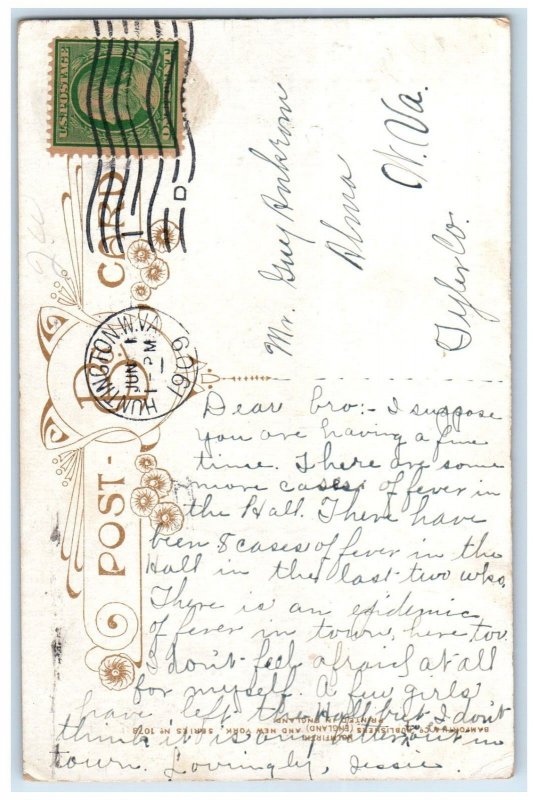 U.S. POSTAGE
HUNTINGTON, W. VA.
JUN 1
1 PM
1909
POST CARD
B
Mr. Guy Ankrom
Alma
W. Va.
Tyler Co.
Dear Bro:- I suppose
you are having a fine
time. There are some
more cases of fever in
the Hall. There have
been 8 cases of fever in the
Hall in the last two wks.
There is an epidemic
of fever in town here too.
I don't feel afraid at all
for myself. A few girls
have left the Hall but I don't
think it is any better out in
town. Lovingly, Jessie.
BAMFORTH & CO. PUBLISHERS (ENGLAND) AND NEW YORK
HOLMFIRTH
SERIES No 1078
PRINTED IN ENGLAND